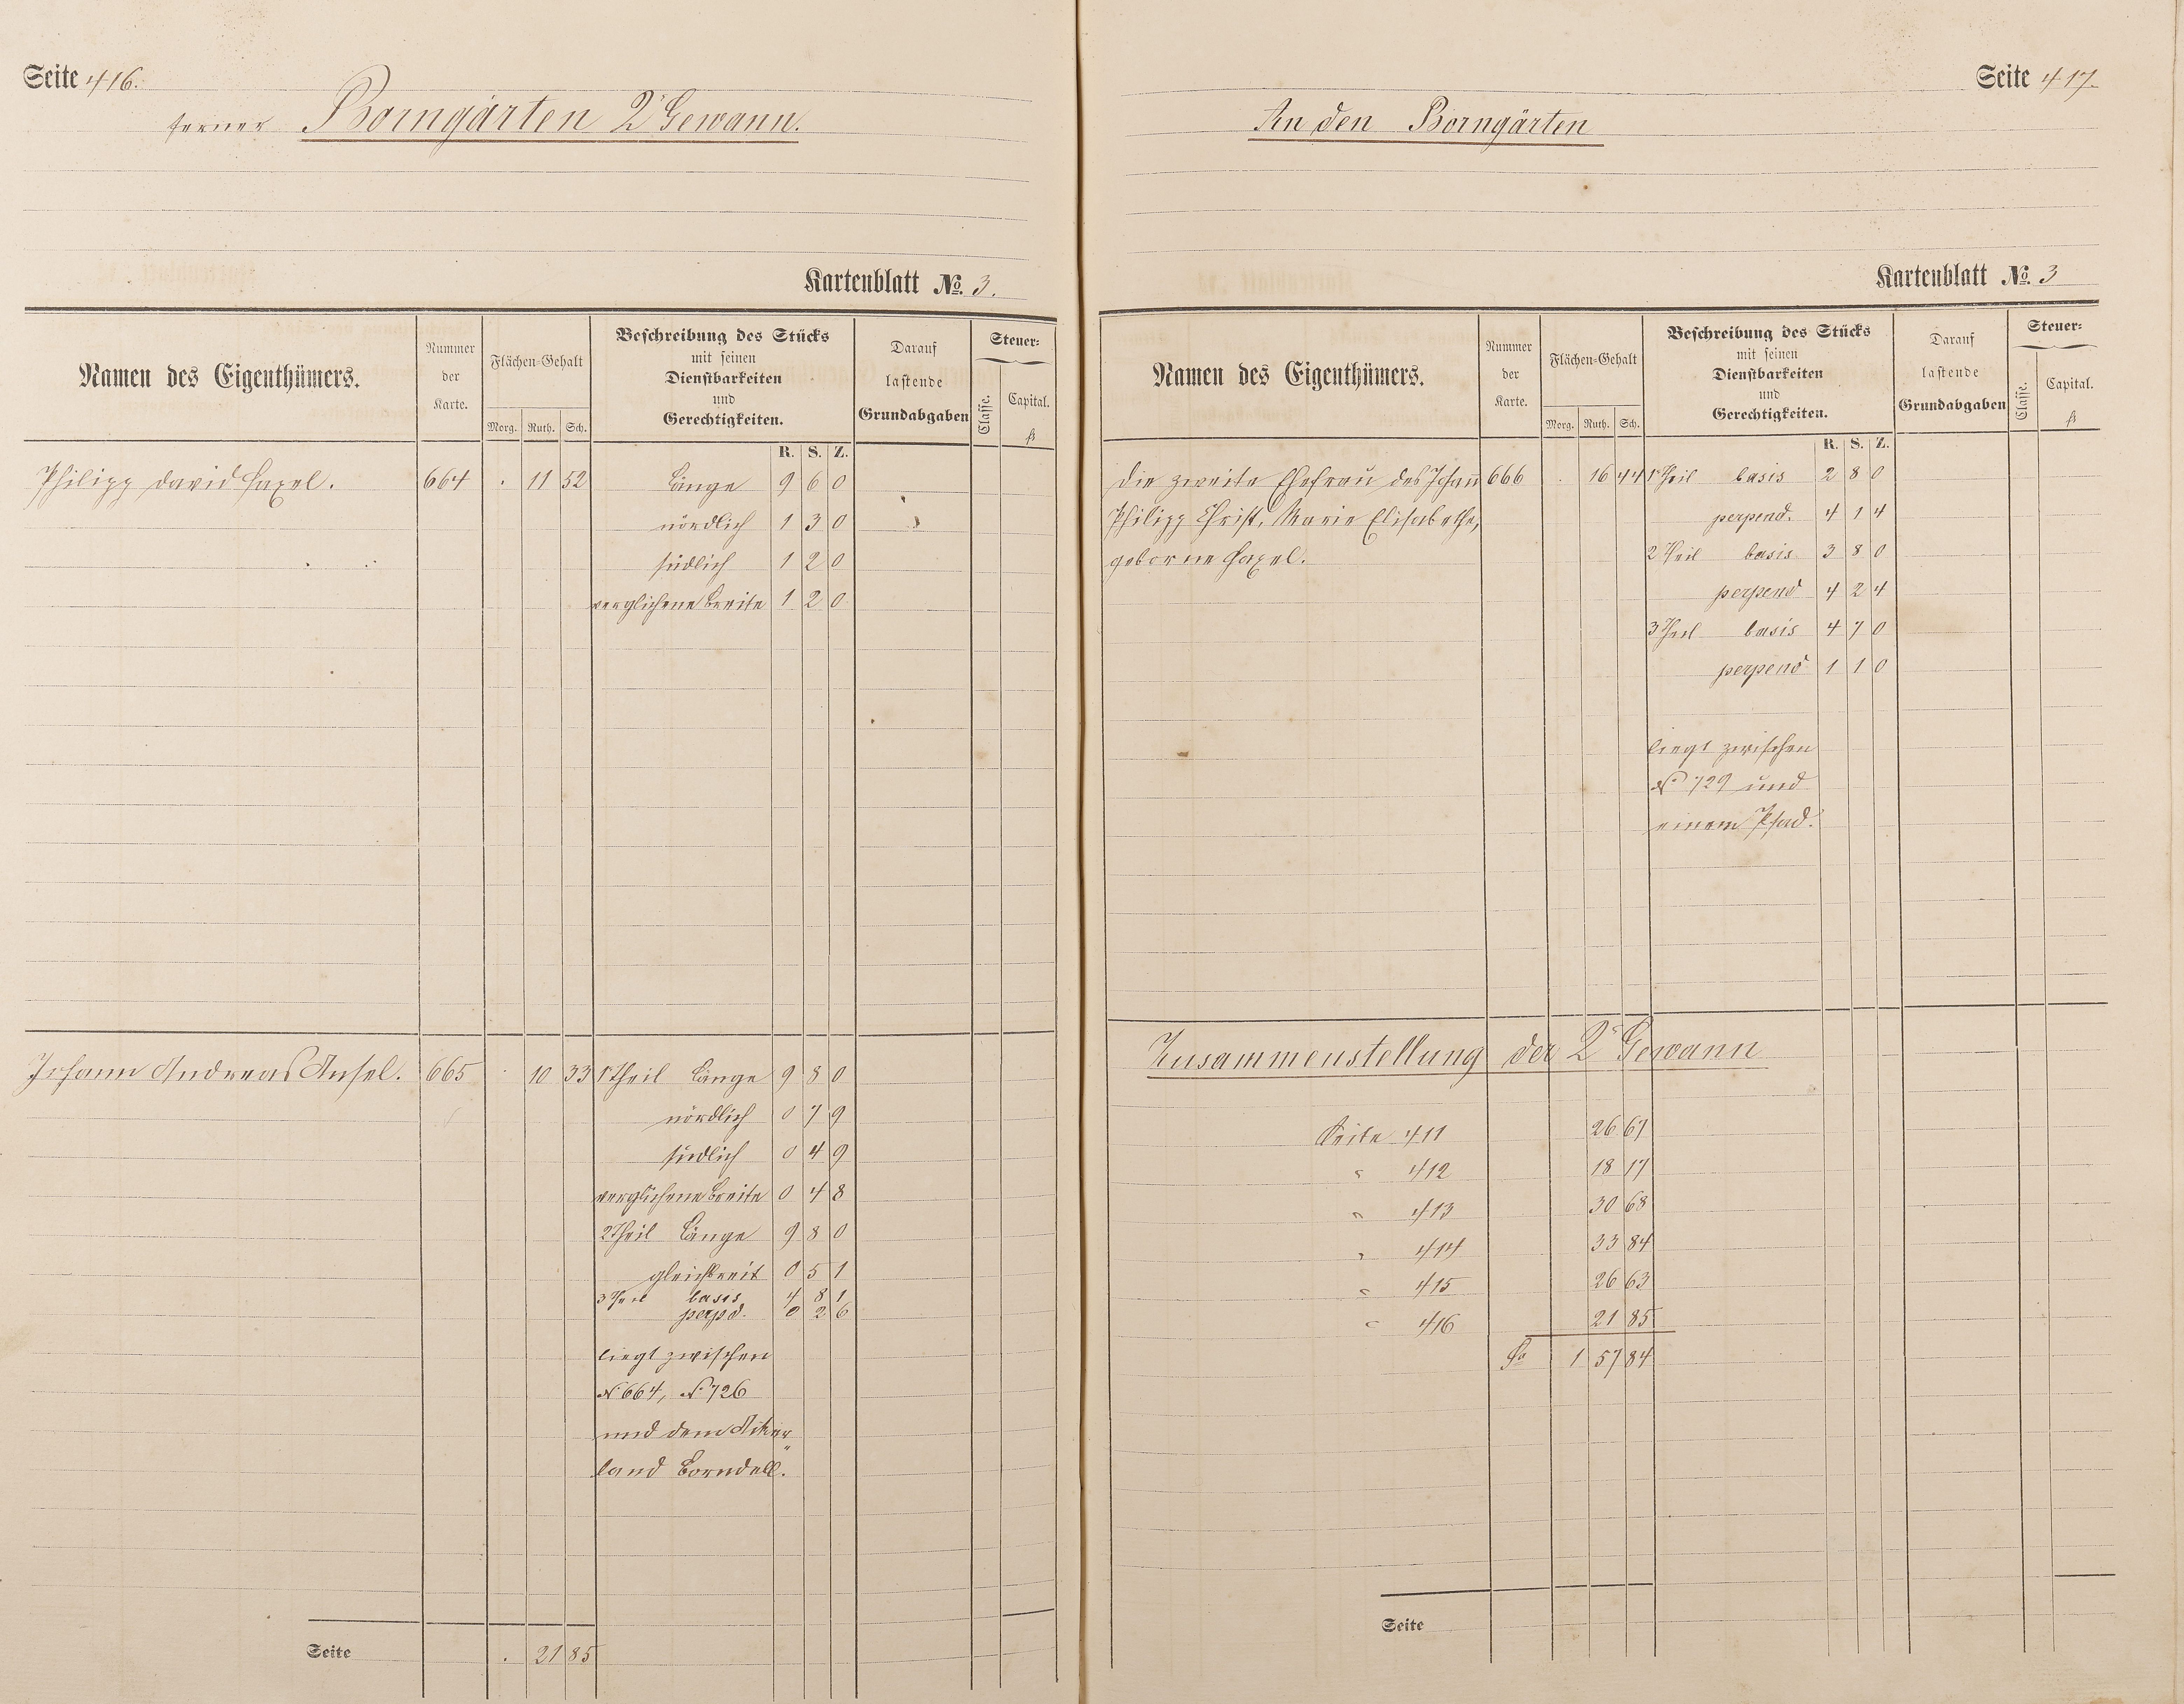 Seite 416.
ferner Borngärten 2r Gewann.
Kartenblatt No. 3.
Namen des Eigenthümers.
Nummer der Karte.
Flächen-Gehalt
Morg. Ruth. Sch.
Beschreibung des Stücks
mit seinen
Dienstbarkeiten
und
Gerechtigkeiten.
Darauf
lastende
Grundabgaben
Steuer-
Classe. Capital.
fl
R. S. Z.
Philipp David Saxel. 664 . 11 52 Länge 9 6 0
nördlich 1 3 0
südlich 1 2 0
verglichene Breite 1 2 0
Johann Andreas Ansel. 665 . 10 33 1r Theil Länge 9 8 0
nördlich 0 7 9
südlich 0 4 9
verglichene Breite 0 4 8
2 Theil Länge 9 8 0
gleichbreit 0 5 1
3 Theil basis 4 8 1
perpd. 0 2 6
liegt zwischen
No 664, No 726
und dem Acker
land Borndell.
Seite . 21 85
Seite 417.
An den Borngärten
Kartenblatt No. 3
Namen des Eigenthümers.
Nummer der Karte.
Flächen-Gehalt
Morg. Ruth. Sch.
Beschreibung des Stücks
mit seinen
Dienstbarkeiten
und
Gerechtigkeiten.
Darauf
lastende
Grundabgaben
Steuer-
Classe. Capital.
fl
R. S. Z.
Die zweite Ehefrau des Johann 666 . 16 44 1r Theil basis 2 8 0
Philipp Christ, Marie Elisabethe, perpend. 4 1 4
geborne Saxel. 2 Theil basis 3 8 0
perpend 4 2 4
3 Theil basis 4 7 0
perpend 1 1 0
liegt zwischen
No 729 und
einem Pfad.
Zusammenstellung der 2r Gewann
Seite 411 26 67
" 412 18 17
" 413 30 68
" 414 33 84
" 415 26 63
" 416 21 85
Sa 1 57 84
Seite